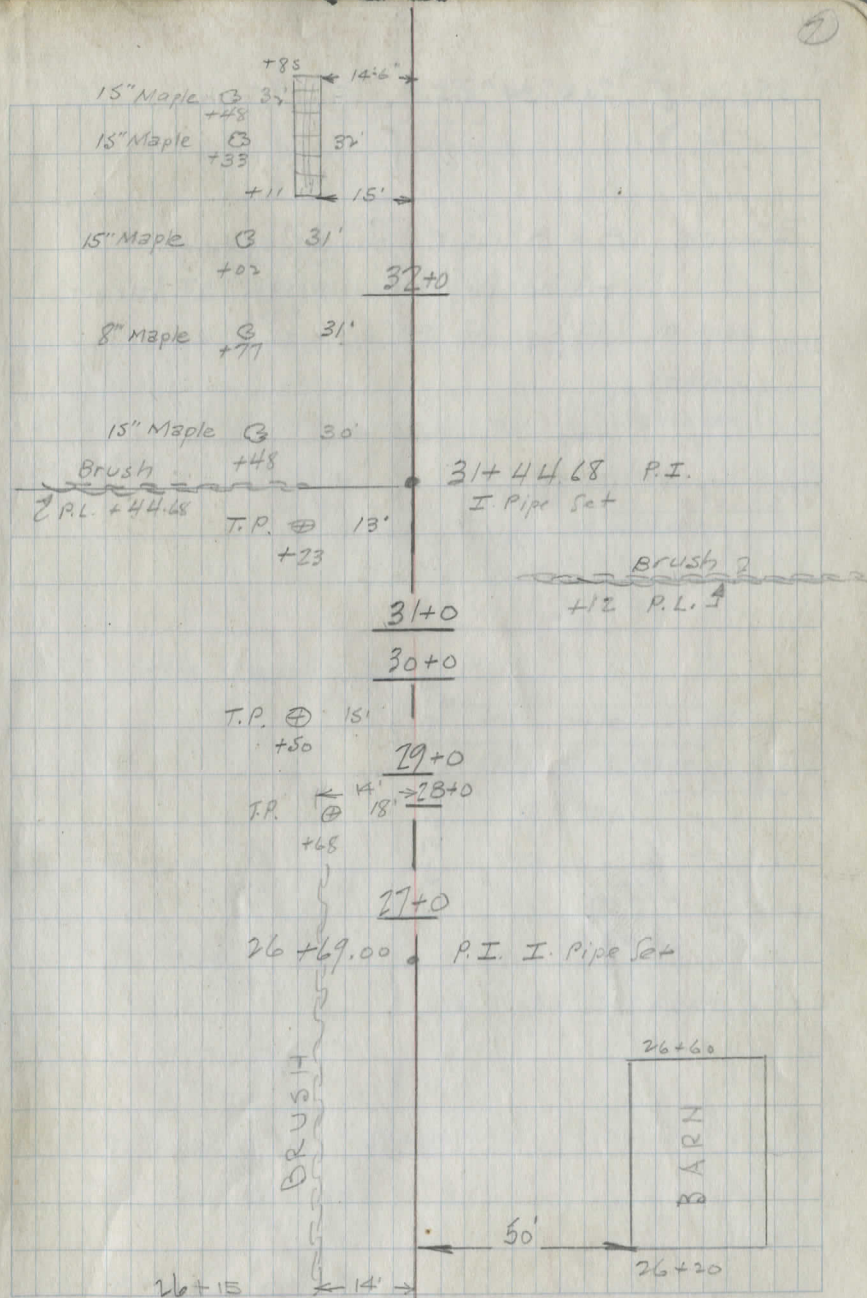 7
+85
14'6"
15" Maple 32'
+48
15" Maple 32'
+33
+11 15'
15" Maple 31'
+02
32+0
8" Maple 31'
+77
15" Maple 30'
+48
Brush
31+44.68 P.I.
I. Pipe Set
P.L. +44.68
T.P. 13'
+23
Brush
+12 P.L.
31+0
30+0
T.P. 15'
+50
29+0
14' 28+0
T.P. 18'
+68
27+0
26+69.00 P.I. I. Pipe Set
26+60
BRUSH
BARN
50'
26+20
26+15 14'